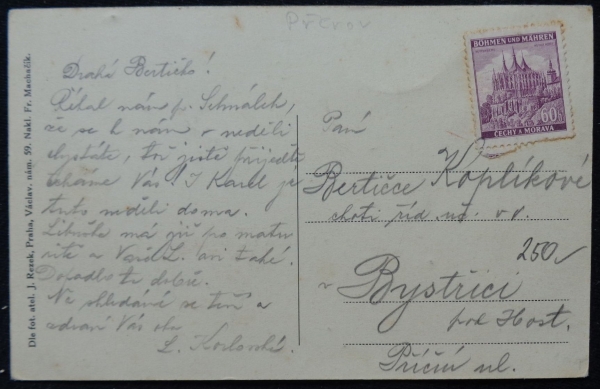 Přerov
Drahá Bertičko!
Říkal nám p. Schmálek,
že se k nám v neděli
chystáte, tož jistě přijeďte
čekáme Vás. I Karel je
tuto neděli doma.
Libuše má již po matu
ritě a Vaše L. asi také.
Dopadlo to dobře.
Na shledanou se těší a
zdraví Vás oba
L. Kozlovská.
Dle fot. atel. J. Rezek, Praha, Václav. nám. 59. Nakl. Fr. Machačík.
BÖHMEN UND MÄHREN
60
ČECHY A MORAVA
Paní
Bertičce Koplíkové
choti říd. uč. v v.
250
v Bystřici
pod Host.
Příční ul.